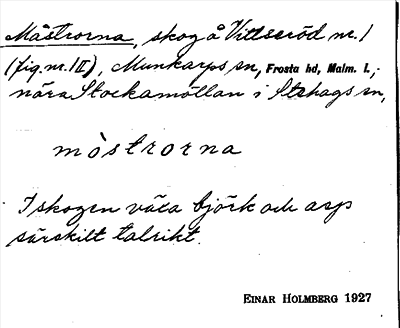 Måstrorna, skog å Vittseröd nr. 1
(fig. nr. 1 II), Munkarps sn, Frosta hd, Malm. l.,
nära Stockamöllan i Stehags sn,
mòstrorna
I skogen växa björk och asp
särskilt talrikt.
EINAR HOLMBERG 1927